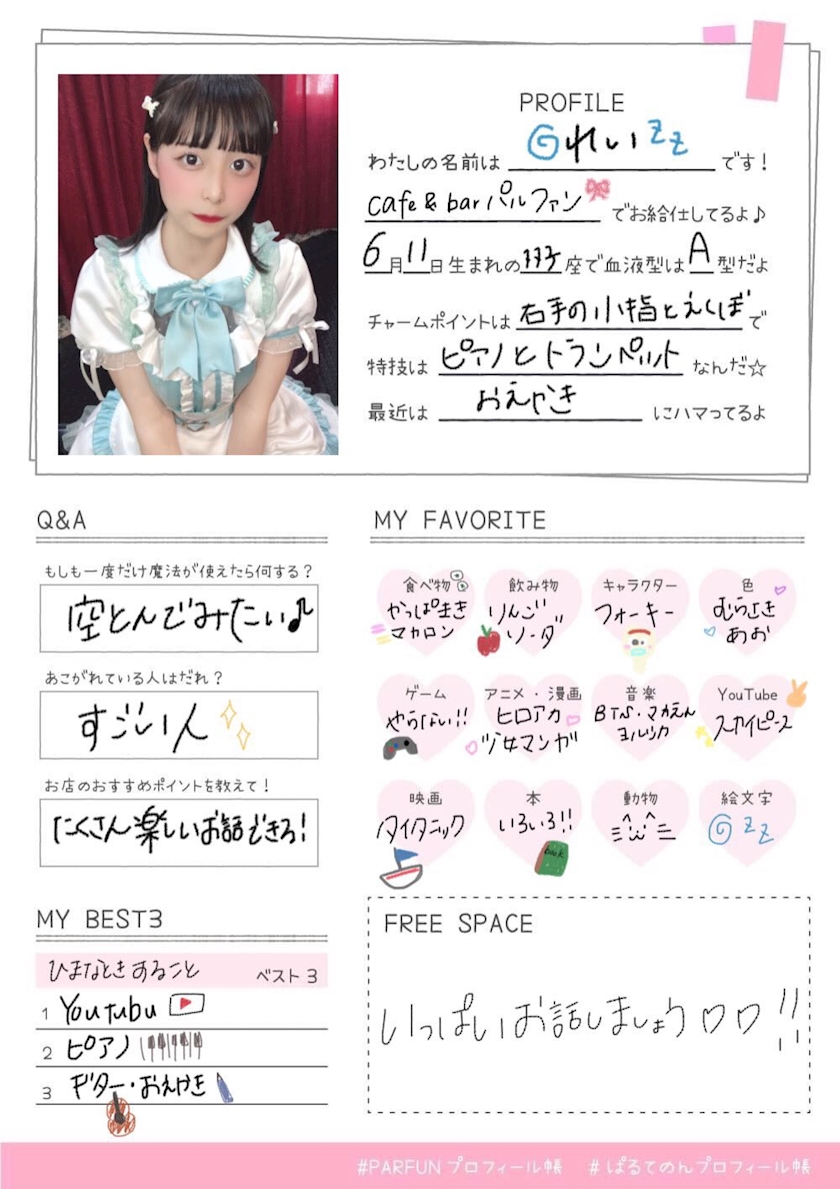 PROFILE
わたしの名前は れい zz です!
cafe & bar パルファン でお給仕してるよ♪
6月11日生まれの 座で血液型はA型だよ
チャームポイントは 右手の小指とえくぼ で
特技は ピアノとトランペット なんだ☆
最近は おえかき にハマってるよ
Q&A
もしも一度だけ魔法が使えたら何する?
空とんでみたい♪
あこがれている人はだれ?
すごい人
お店のおすすめポイントを教えて!
たくさん楽しいお話できる!
MY BEST3
ひまなときすること ベスト3
1 Youtubu
2 ピアノ
3 ギター・おえかき
MY FAVORITE
食べ物 飲み物 キャラクター 色
かっぱまき りんご フォーキー むらさき
マカロン ソーダ あお
ゲーム アニメ・漫画 音楽 YouTube
やらない!! ヒロアカ BTS・マカえん スカイピース
少女マンガ ヨルシカ
映画 本 動物 絵文字
タイタニック いろいろ!! zz
book
FREE SPACE
いっぱいお話しましょう♡♡!!
#PARFUNプロフィール帳 #ぱるてのんプロフィール帳